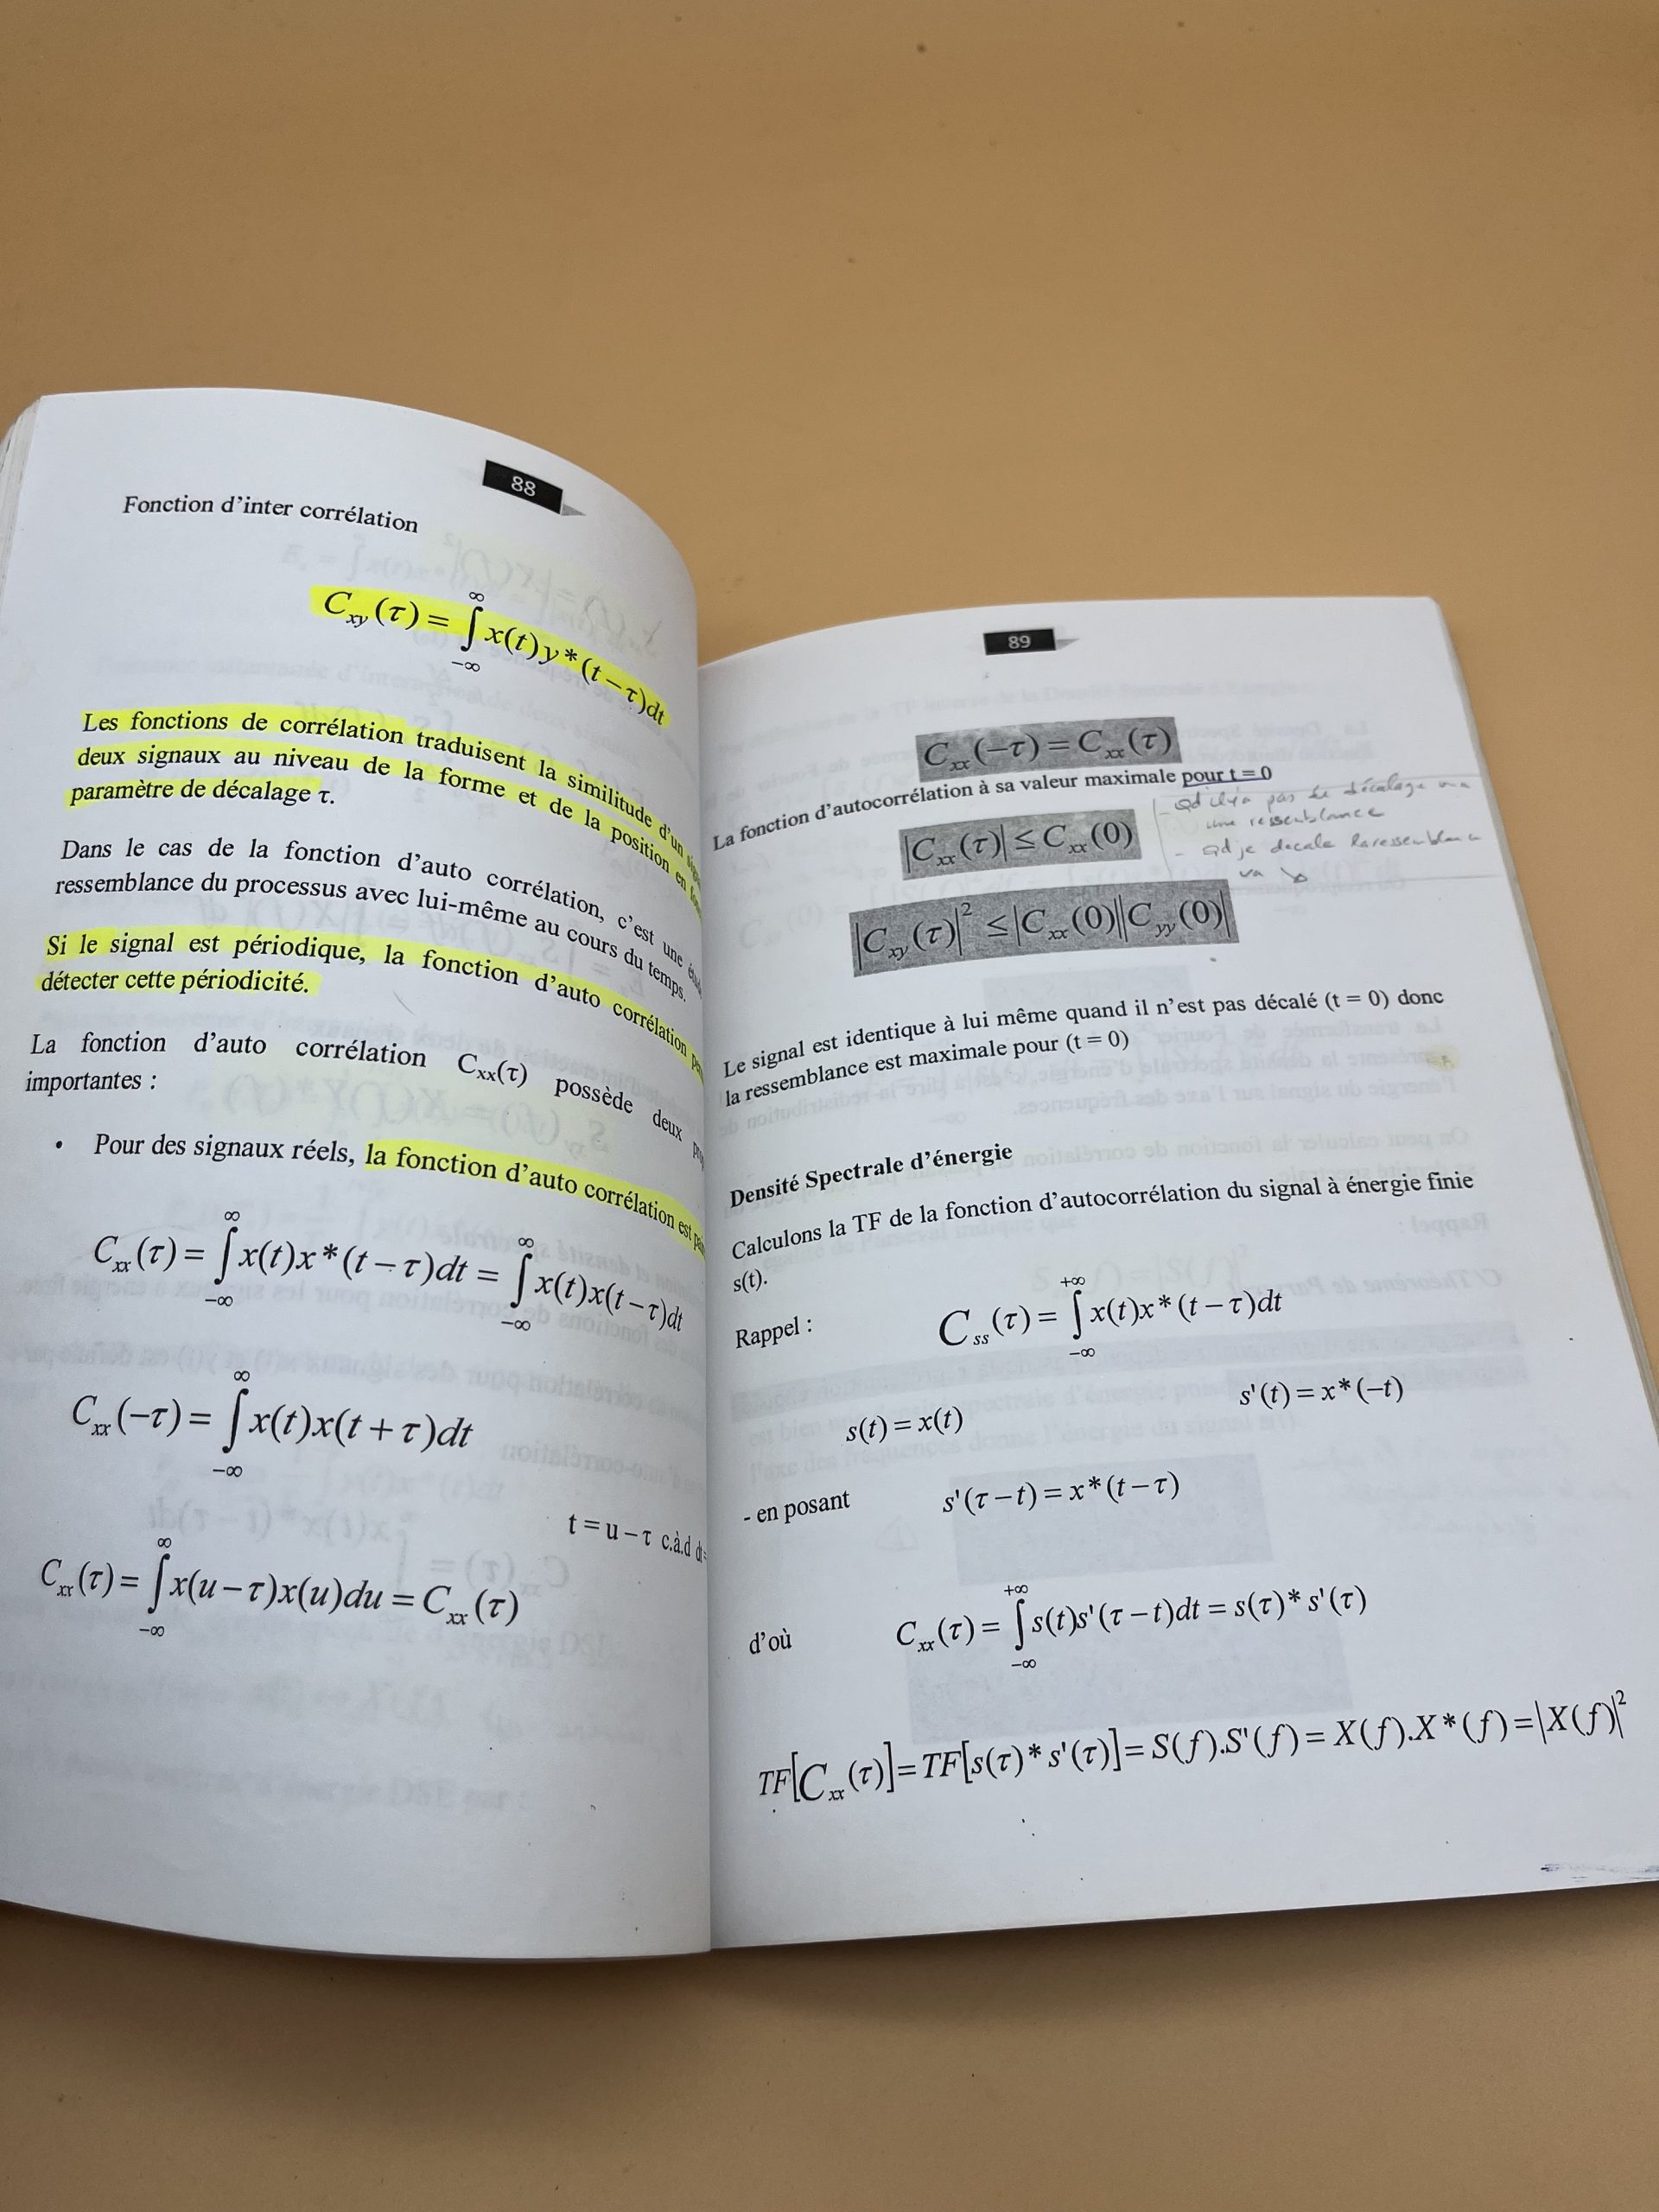 88
Fonction d'inter corrélation
C_xy(τ) = ∫_{-∞}^{∞} x(t) y*(t − τ)dt
Les fonctions de corrélation traduisent la similitude d'un
deux signaux au niveau de la forme et de la position en
paramètre de décalage τ.
Dans le cas de la fonction d'auto corrélation, c'est une
ressemblance du processus avec lui-même au cours du temps.
Si le signal est périodique, la fonction d'auto corrélation
détecter cette périodicité.
La fonction d'auto corrélation Cxx(τ) possède deux
importantes :
• Pour des signaux réels, la fonction d'auto corrélation est
C_xx(τ) = ∫_{-∞}^{∞} x(t)x*(t − τ)dt = ∫_{-∞}^{∞} x(t)x(t − τ)dt
C_xx(−τ) = ∫_{-∞}^{∞} x(t)x(t + τ)dt
t = u − τ c.à.d
C_xx(τ) = ∫_{-∞}^{∞} x(u − τ)x(u)du = C_xx(τ)
89
C_xx(−τ) = C_xx(τ)
La fonction d'autocorrélation à sa valeur maximale pour t = 0
- qd il y'a pas de décalage
une ressemblance
- qd je decale la ressemblance
va ↘
|C_xx(τ)| ≤ C_xx(0)
|C_xy(τ)|² ≤ |C_xx(0)||C_yy(0)|
Le signal est identique à lui même quand il n'est pas décalé (t = 0) donc
la ressemblance est maximale pour (t = 0)
Densité Spectrale d'énergie
Calculons la TF de la fonction d'autocorrélation du signal à énergie finie
s(t).
Rappel : C_ss(τ) = ∫_{-∞}^{+∞} x(t)x*(t − τ)dt
s(t) = x(t) s'(t) = x*(−t)
- en posant s'(τ − t) = x*(t − τ)
d'où C_xx(τ) = ∫_{-∞}^{+∞} s(t)s'(τ − t)dt = s(τ)* s'(τ)
TF[C_xx(τ)] = TF[s(τ)* s'(τ)] = S(f).S'(f) = X(f).X*(f) = |X(f)|²